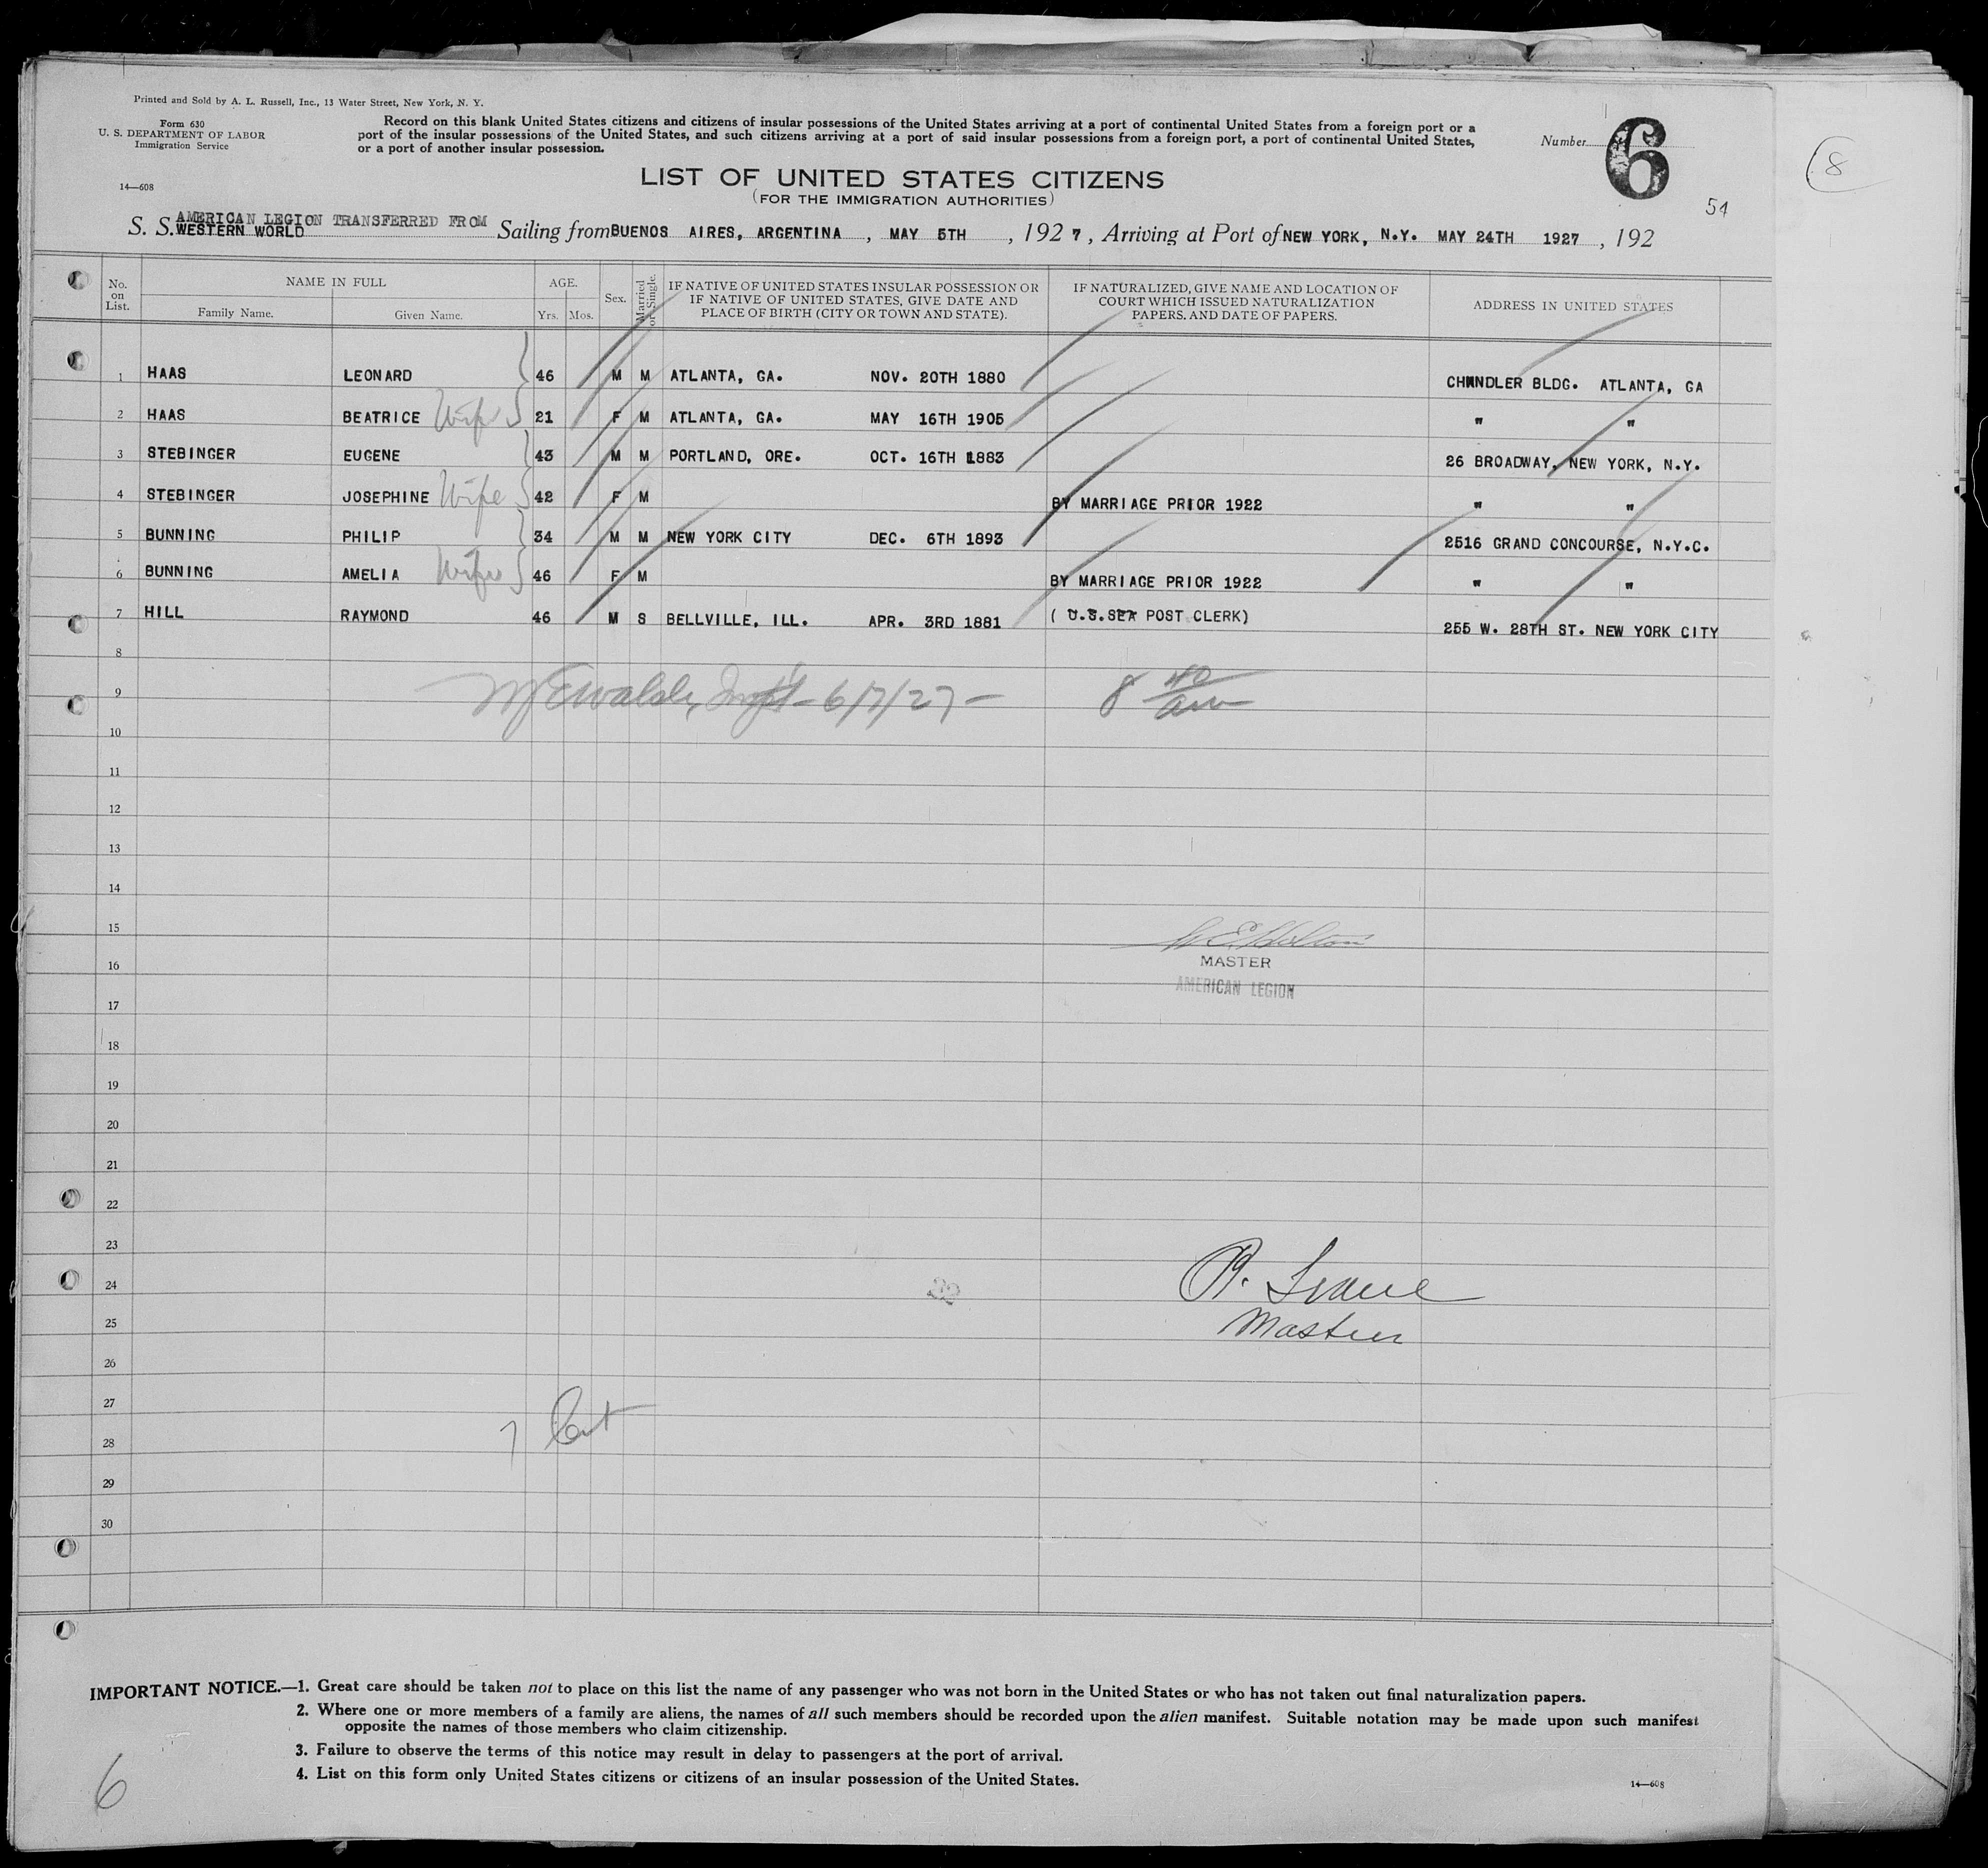 Printed and Sold by A. L. Russell, Inc., 13 Water Street, New York, N. Y.
Form 630
U. S. DEPARTMENT OF LABOR
Immigration Service
14—608
Record on this blank United States citizens and citizens of insular possessions of the United States arriving at a port of continental United States from a foreign port or a
port of the insular possessions of the United States, and such citizens arriving at a port of said insular possessions from a foreign port, a port of continental United States,
or a port of another insular possession.
Number 6
8
LIST OF UNITED STATES CITIZENS
(FOR THE IMMIGRATION AUTHORITIES)
54
AMERICAN LEGION TRANSFERRED FROM
S. S. WESTERN WORLD Sailing from BUENOS AIRES, ARGENTINA, MAY 5TH, 1927, Arriving at Port of NEW YORK, N.Y. MAY 24TH 1927, 192
No. on List. NAME IN FULL Family Name. Given Name. AGE. Yrs. Mos. Sex. Married or Single. IF NATIVE OF UNITED STATES INSULAR POSSESSION OR IF NATIVE OF UNITED STATES, GIVE DATE AND PLACE OF BIRTH (CITY OR TOWN AND STATE). IF NATURALIZED, GIVE NAME AND LOCATION OF COURT WHICH ISSUED NATURALIZATION PAPERS, AND DATE OF PAPERS. ADDRESS IN UNITED STATES
1 HAAS LEONARD 46 M M ATLANTA, GA. NOV. 20TH 1880 CHANDLER BLDG. ATLANTA, GA
2 HAAS BEATRICE Wife 21 F M ATLANTA, GA. MAY 16TH 1905 " "
3 STEBINGER EUGENE 43 M M PORTLAND, ORE. OCT. 16TH 1883 26 BROADWAY, NEW YORK, N.Y.
4 STEBINGER JOSEPHINE Wife 42 F M BY MARRIAGE PRIOR 1922 " "
5 BUNNING PHILIP 34 M M NEW YORK CITY DEC. 6TH 1893 2516 GRAND CONCOURSE, N.Y.C.
6 BUNNING AMELIA Wife 46 F M BY MARRIAGE PRIOR 1922 " "
7 HILL RAYMOND 46 M S BELLVILLE, ILL. APR. 3RD 1881 ( U.S.SEA POST CLERK) 255 W. 28TH ST. NEW YORK CITY
8
9 6/7/27 - 8 40 am
10
11
12
13
14
15
16 MASTER
17 AMERICAN LEGION
18
19
20
21
22
23
24
25 Master
26
27
28 7
29
30
IMPORTANT NOTICE.—1. Great care should be taken not to place on this list the name of any passenger who was not born in the United States or who has not taken out final naturalization papers.
2. Where one or more members of a family are aliens, the names of all such members should be recorded upon the alien manifest. Suitable notation may be made upon such manifest
opposite the names of those members who claim citizenship.
3. Failure to observe the terms of this notice may result in delay to passengers at the port of arrival.
4. List on this form only United States citizens or citizens of an insular possession of the United States.
14—608
6